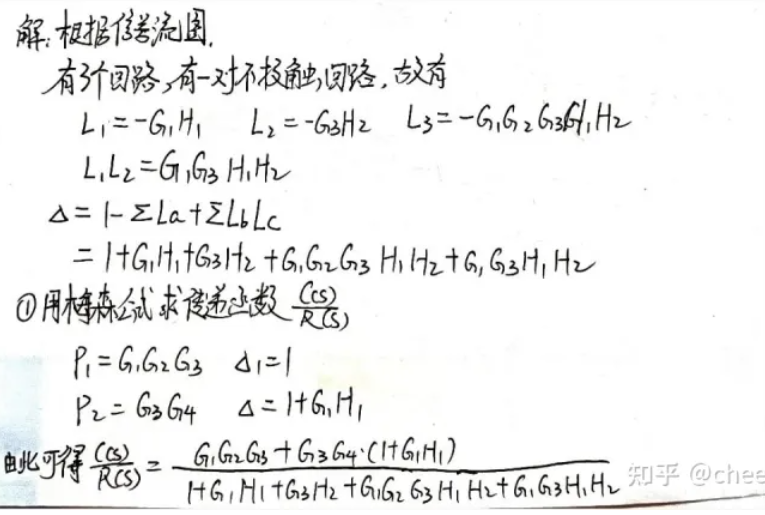 解:根据信号流图,
有3个回路,有一对不接触回路,故有
L₁=-G₁H₁ L₂=-G₃H₂ L₃=-G₁G₂G₃H₁H₂
L₁L₂=G₁G₃H₁H₂
Δ=1-ΣLa+ΣLbLc
=1+G₁H₁+G₃H₂+G₁G₂G₃H₁H₂+G₁G₃H₁H₂
①用梅森公式求传递函数 C(S)/R(S)
P₁=G₁G₂G₃ Δ₁=1
P₂=G₃G₄ Δ=1+G₁H₁
由此可得 C(S)/R(S) = G₁G₂G₃+G₃G₄·(1+G₁H₁) / 1+G₁H₁+G₃H₂+G₁G₂G₃H₁H₂+G₁G₃H₁H₂
知乎 @chee